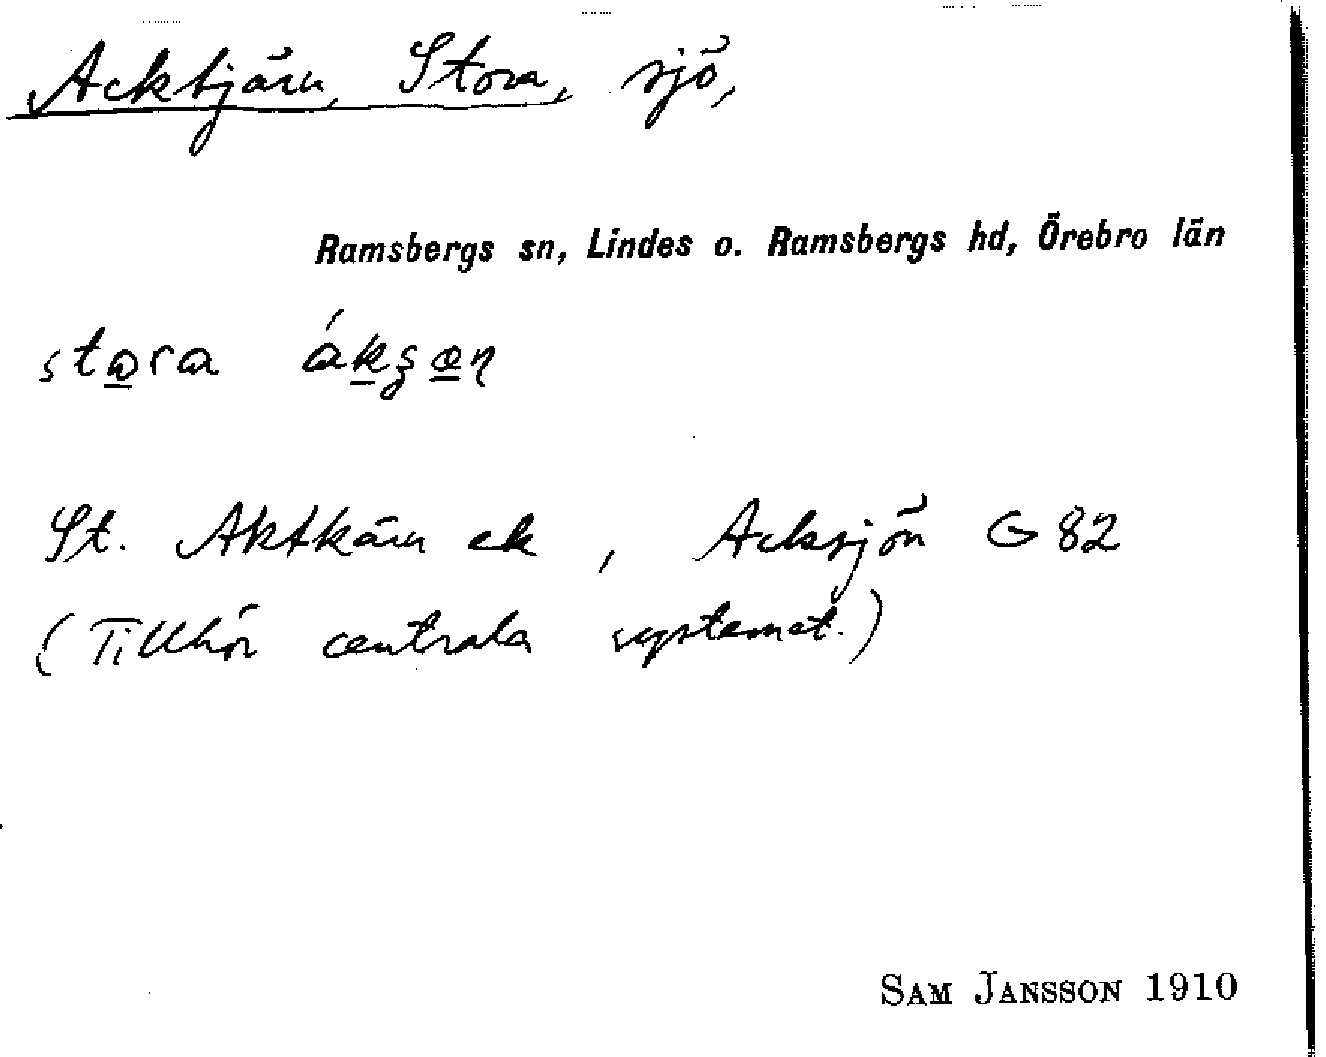 Acktjärn, Stora, sjö,
Ramsbergs sn, Lindes o. Ramsbergs hd, Örebro län
stora
St. Aktkärn ek, Acksjön G 82
(Tillhör centrala systemet.)
SAM JANSSON 1910